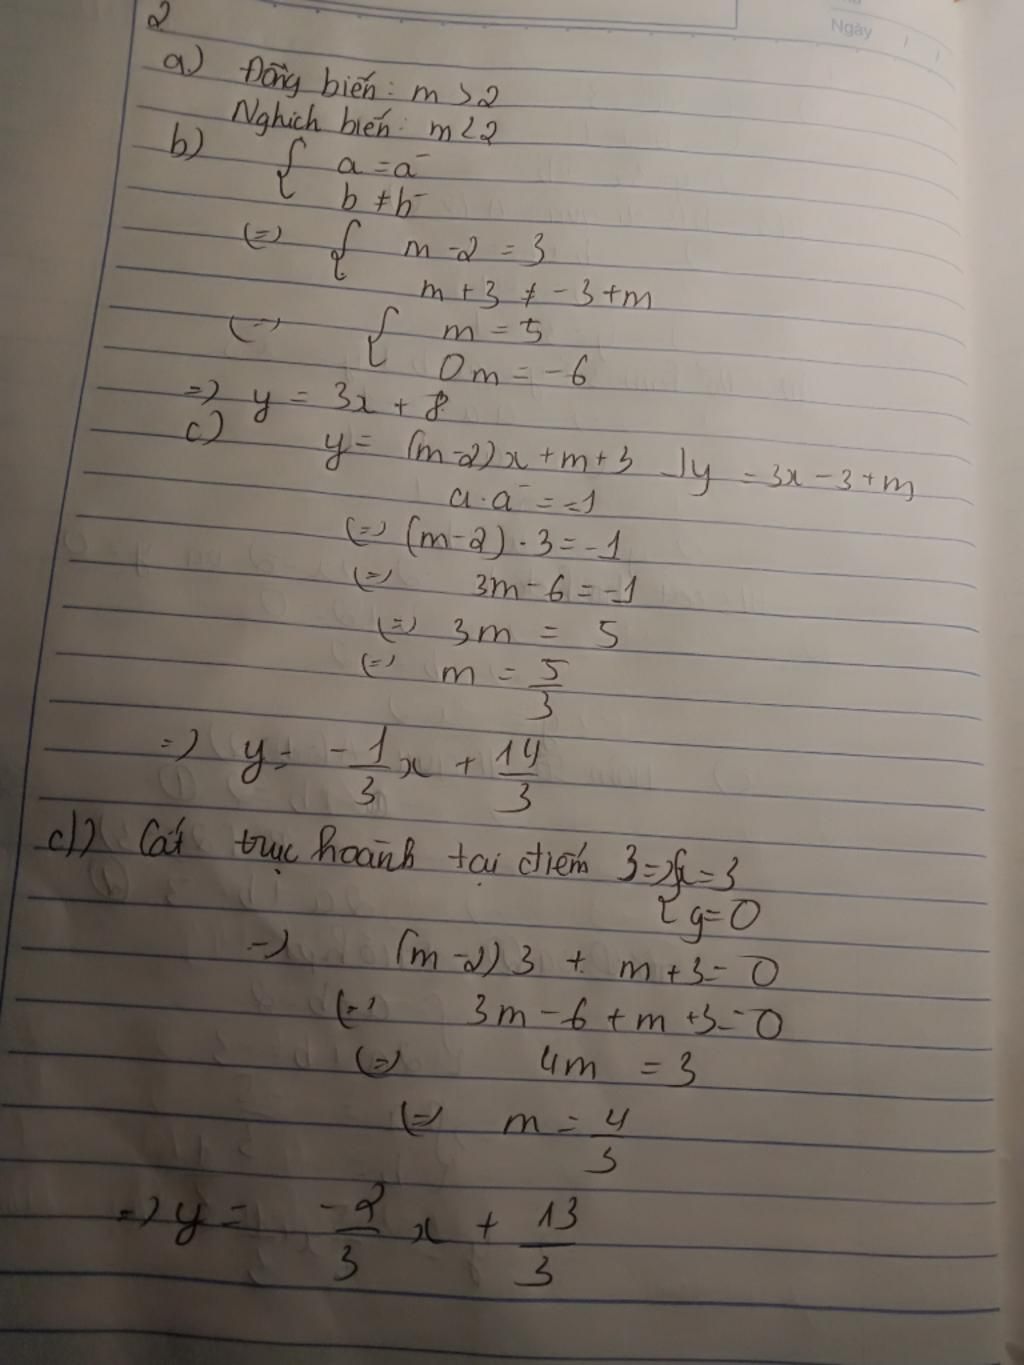 Ngày
2
a) Đồng biến: m > 2
Nghịch biến: m < 2
b) { a = a'
b ≠ b'
(=) { m - 2 = 3
m + 3 ≠ - 3 + m
(=) { m = 5
0m = -6
=) y = 3x + 8
c) y = (m-2)x + m + 3 ⊥ y = 3x - 3 + m
a . a' = -1
(=) (m-2) . 3 = -1
(=) 3m - 6 = -1
(=) 3m = 5
(=) m = 5/3
=) y = -1/3 x + 14/3
d) Cắt trục hoành tại điểm 3 =) { x = 3
{ y = 0
=) (m-2) 3 + m + 3 = 0
(=) 3m - 6 + m + 3 = 0
(=) 4m = 3
(=) m = 4/3
=) y = -2/3 x + 13/3